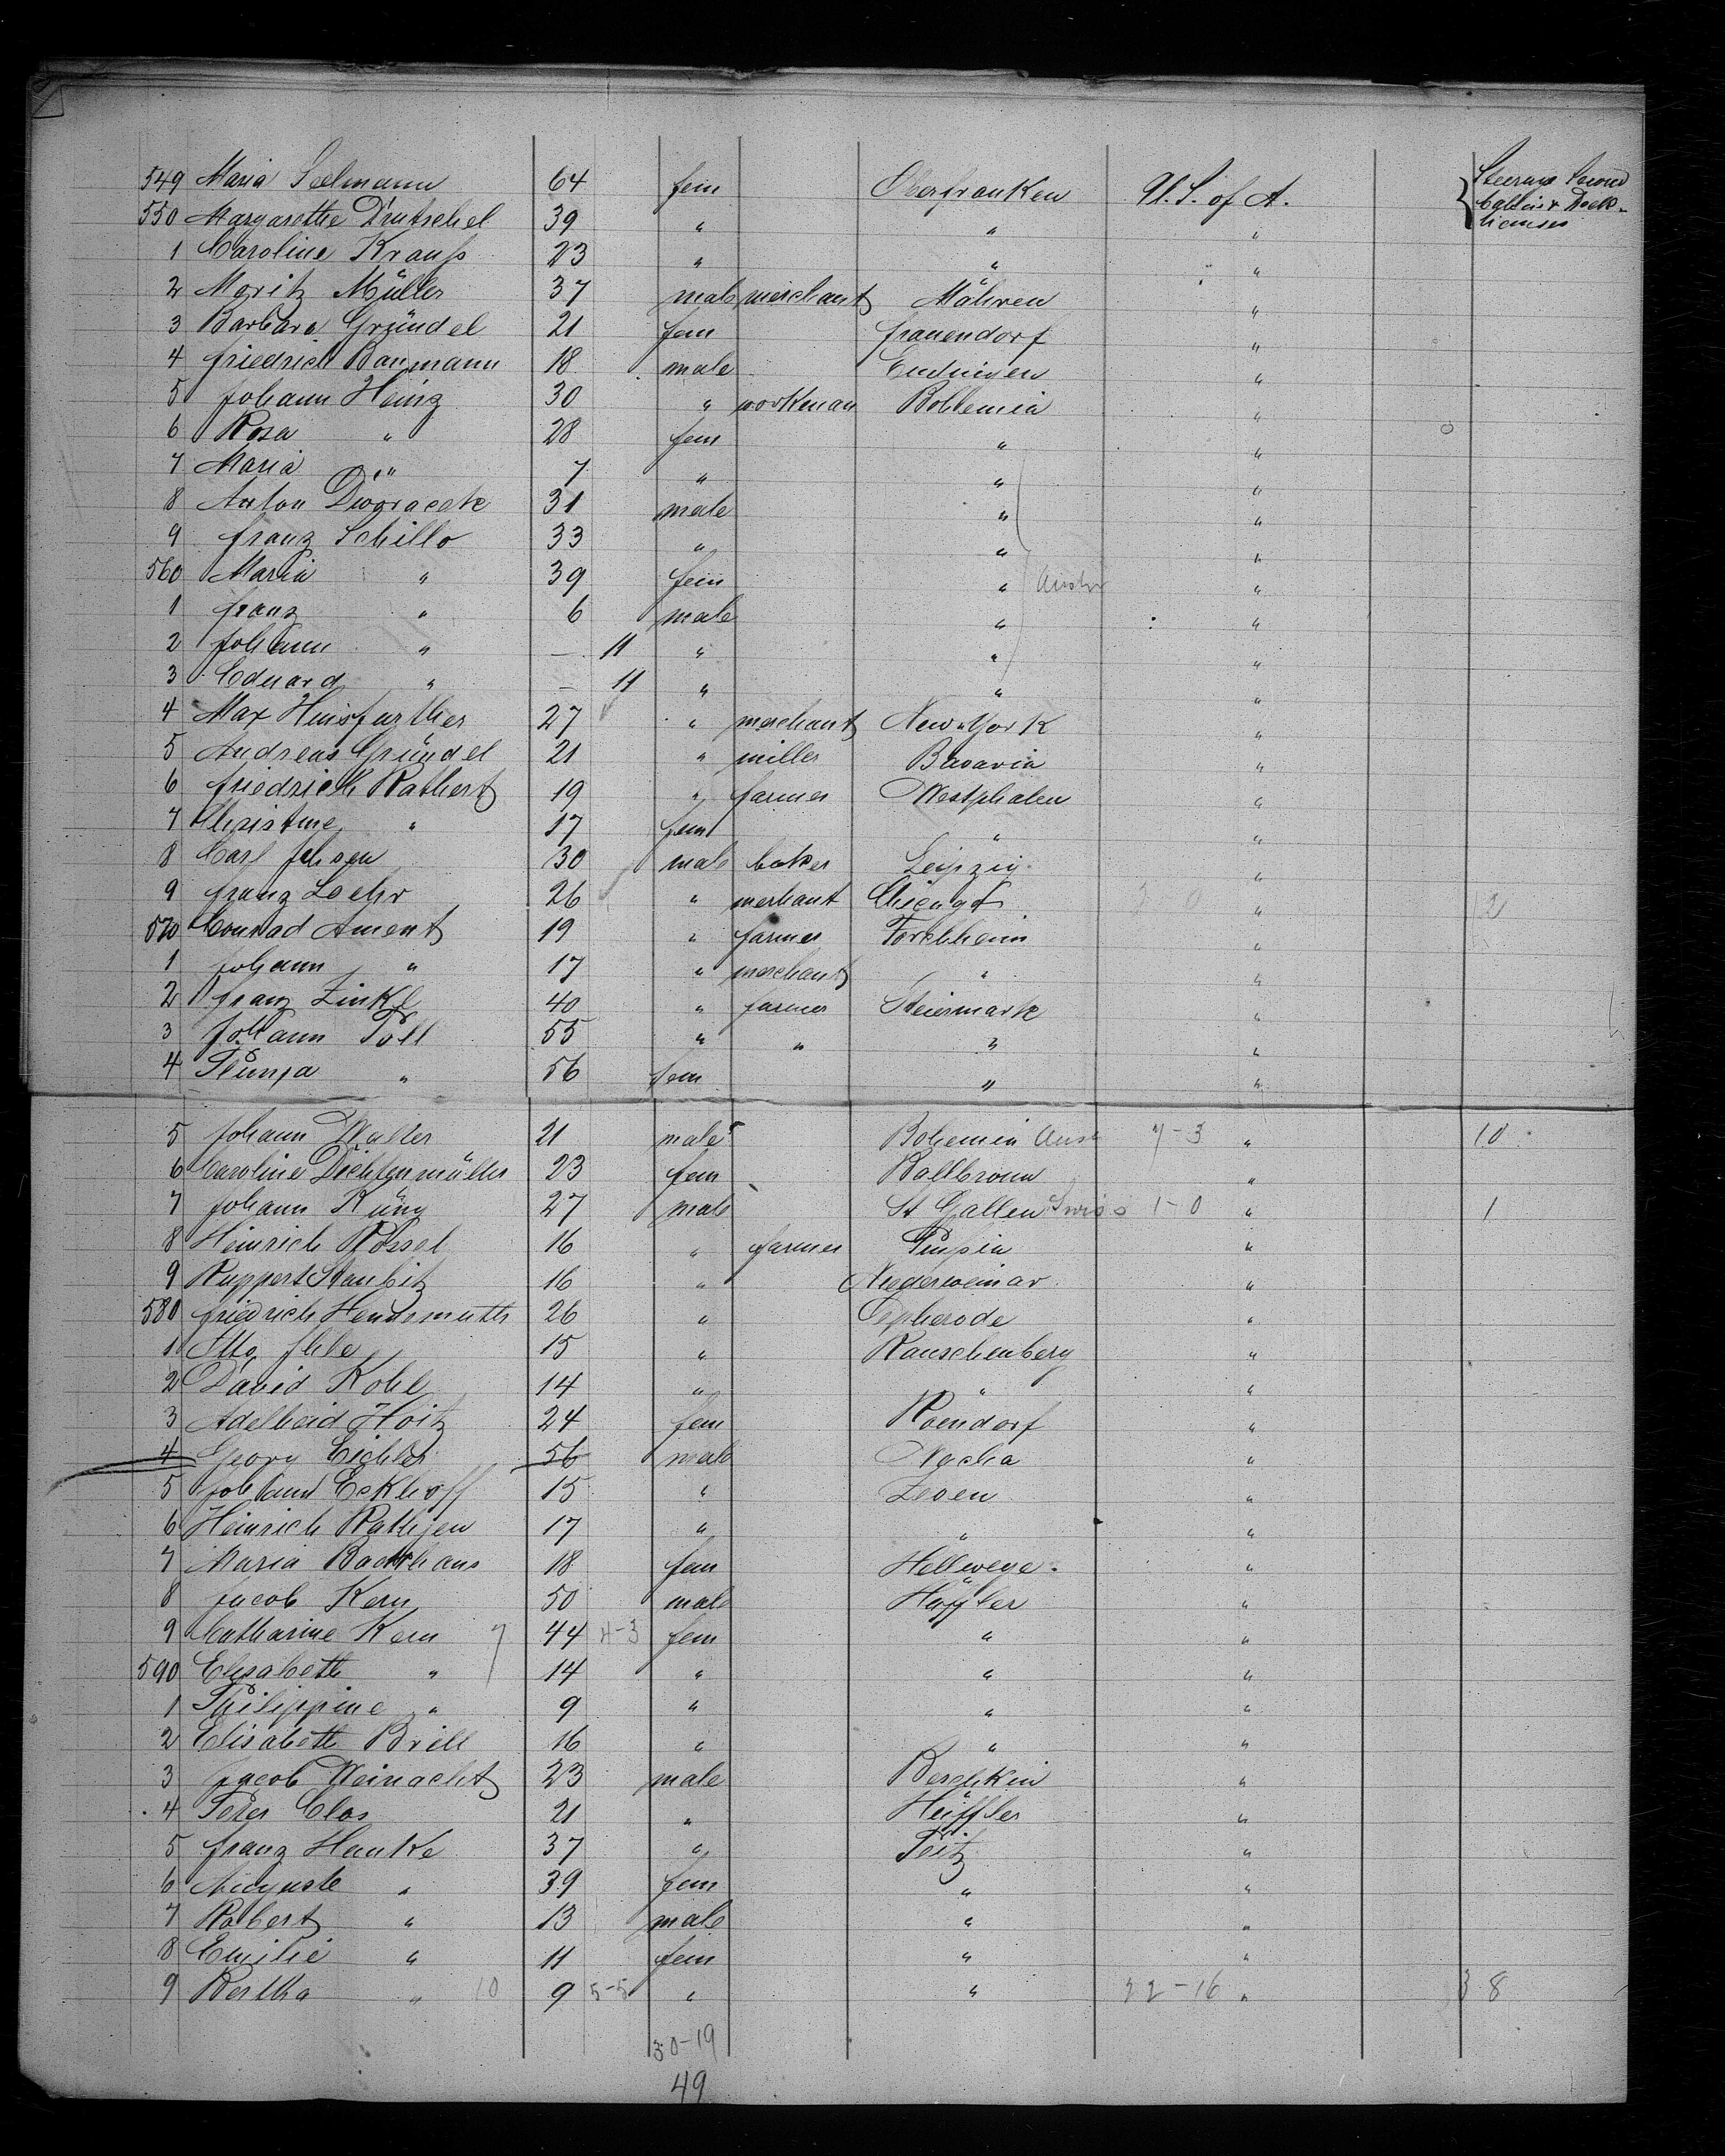 549 Maria Seelmann 64 fem Oberfranken U.S. of A. { Steerage Second Cabin & Deck-houses
550 Margarethe Drutschel 39 " " "
1 Caroline Krauß 23 " " "
2 Moritz Müller 37 male merchant Mähren "
3 Barbara Gründel 21 fem Frauendorf "
4 Friedrich Baumann 18 male "
5 Johann Heinz 30 " workman Bohemia "
6 Rosa " 28 fem " "
7 Maria " 7 " " "
8 Anton Dworacek 31 male " "
9 Franz Schillo 33 " " "
560 Maria " 39 fem " Austr "
1 Franz " 6 male " "
2 Johann " — 11 " " "
3 Eduard " — 11 " " "
4 Max Hinsfurther 27 " merchant New-York "
5 Andreas Gründel 21 " miller Bavaria "
6 Friedrich Rathert 19 " farmer Westphalen "
7 Christine " 17 fem " "
8 Carl Jensen 30 male baker Leipzig "
9 Franz Loehr 26 " merchant Chicago "
570 Conrad Ament 19 " farmer Forchheim "
1 Johann " 17 " merchant " "
2 Franz Zinkl 40 " farmer Steiermark "
3 Johann Poll 55 " " " "
4 " 56 fem " "
5 Johann Walter 21 male Bohemia Aust 7-3 " 10
6 Caroline 23 fem Ballbronn "
7 Johann Küng 27 male St Gallen Swiss 1-0 " 1
8 Heinrich Rössel 16 " farmer Prußia "
9 Ruppert Staubitz 16 " Niederweimar "
580 Friedrich Hendsmuth 26 " Epherode "
1 Otto Ihle 15 " Rauschenberg "
2 David Kohl 14 " " "
3 Adelheid Hoitz 24 fem Roendorf "
4 Georg Eichler 56 male Nacha "
5 Johann Eckhoff 15 " Zeven "
6 Heinrich Rathjen 17 " " "
7 Maria Backhaus 18 fem Hellwege "
8 Jacob Kern 50 male Hüffler "
9 Catharine Kern 7 44 4-3 fem " "
590 Elisabeth " 14 " " "
1 Philippine " 9 " " "
2 Elisabeth Brill 16 " " "
3 Jacob Weinacht 23 male "
4 Peter Clos 21 " Hüffler "
5 Franz Hanke 37 " "
6 Auguste " 39 fem " "
7 Robert " 13 male " "
8 Emilie " 11 fem " "
9 Bertha " 10 9 5-5 " " 32-16 " 38
30-19
49